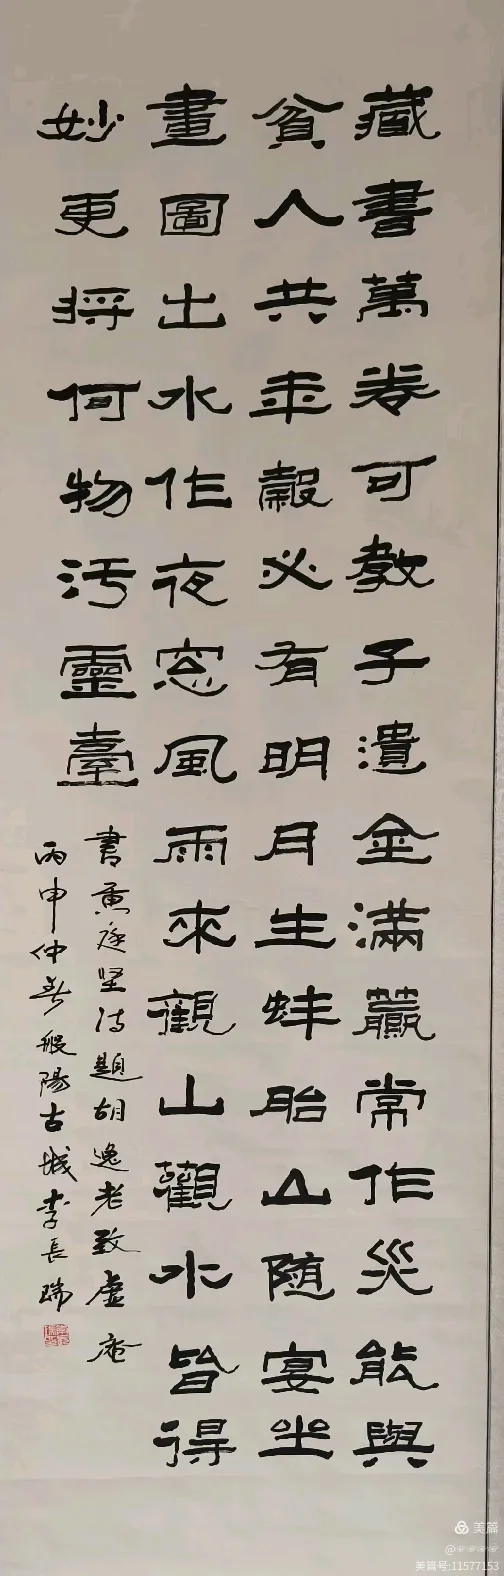 藏書萬卷可教子遺金滿籯常作災能與
貧人共年穀必有明月生蚌胎山隨宴坐
畫圖出水作夜窓風雨來觀山觀水皆得
妙更將何物汚靈臺
書黄庭坚诗題胡逸老致虛庵
丙申仲春般陽古城李長瑞
美篇
美篇号:11577153